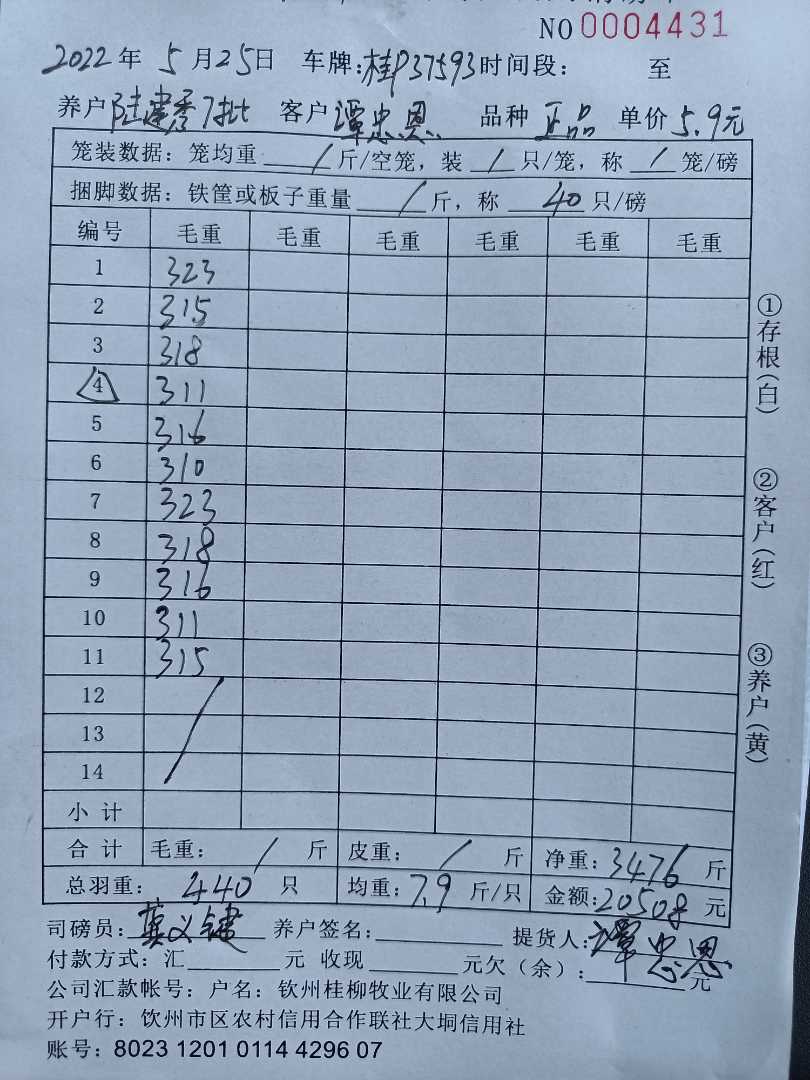 NO 0004431
2022年 5月25日 车牌:桂P37593 时间段: 至
养户 陆建秀7批 客户 谭忠恩 品种 正品 单价 5.9元
笼装数据: 笼均重 / 斤/空笼, 装 / 只/笼, 称 / 笼/磅
捆脚数据: 铁筐或板子重量 / 斤, 称 40 只/磅
编号 毛重 毛重 毛重 毛重 毛重 毛重
1 323
2 315
3 318
4 311
5 316
6 310
7 323
8 318
9 316
10 311
11 315
12
13
14
小计
合计 毛重: / 斤 皮重: / 斤 净重: 3476 斤
总羽重: 440 只 均重: 7.9 斤/只 金额: 20508 元
司磅员: 莫义键 养户签名: 提货人: 谭忠恩
付款方式: 汇 元 收现 元欠(余): 元
公司汇款帐号: 户名: 钦州桂柳牧业有限公司
开户行: 钦州市区农村信用合作联社大垌信用社
账号: 8023 1201 0114 4296 07
①存根(白)
②客户(红)
③养户(黄)